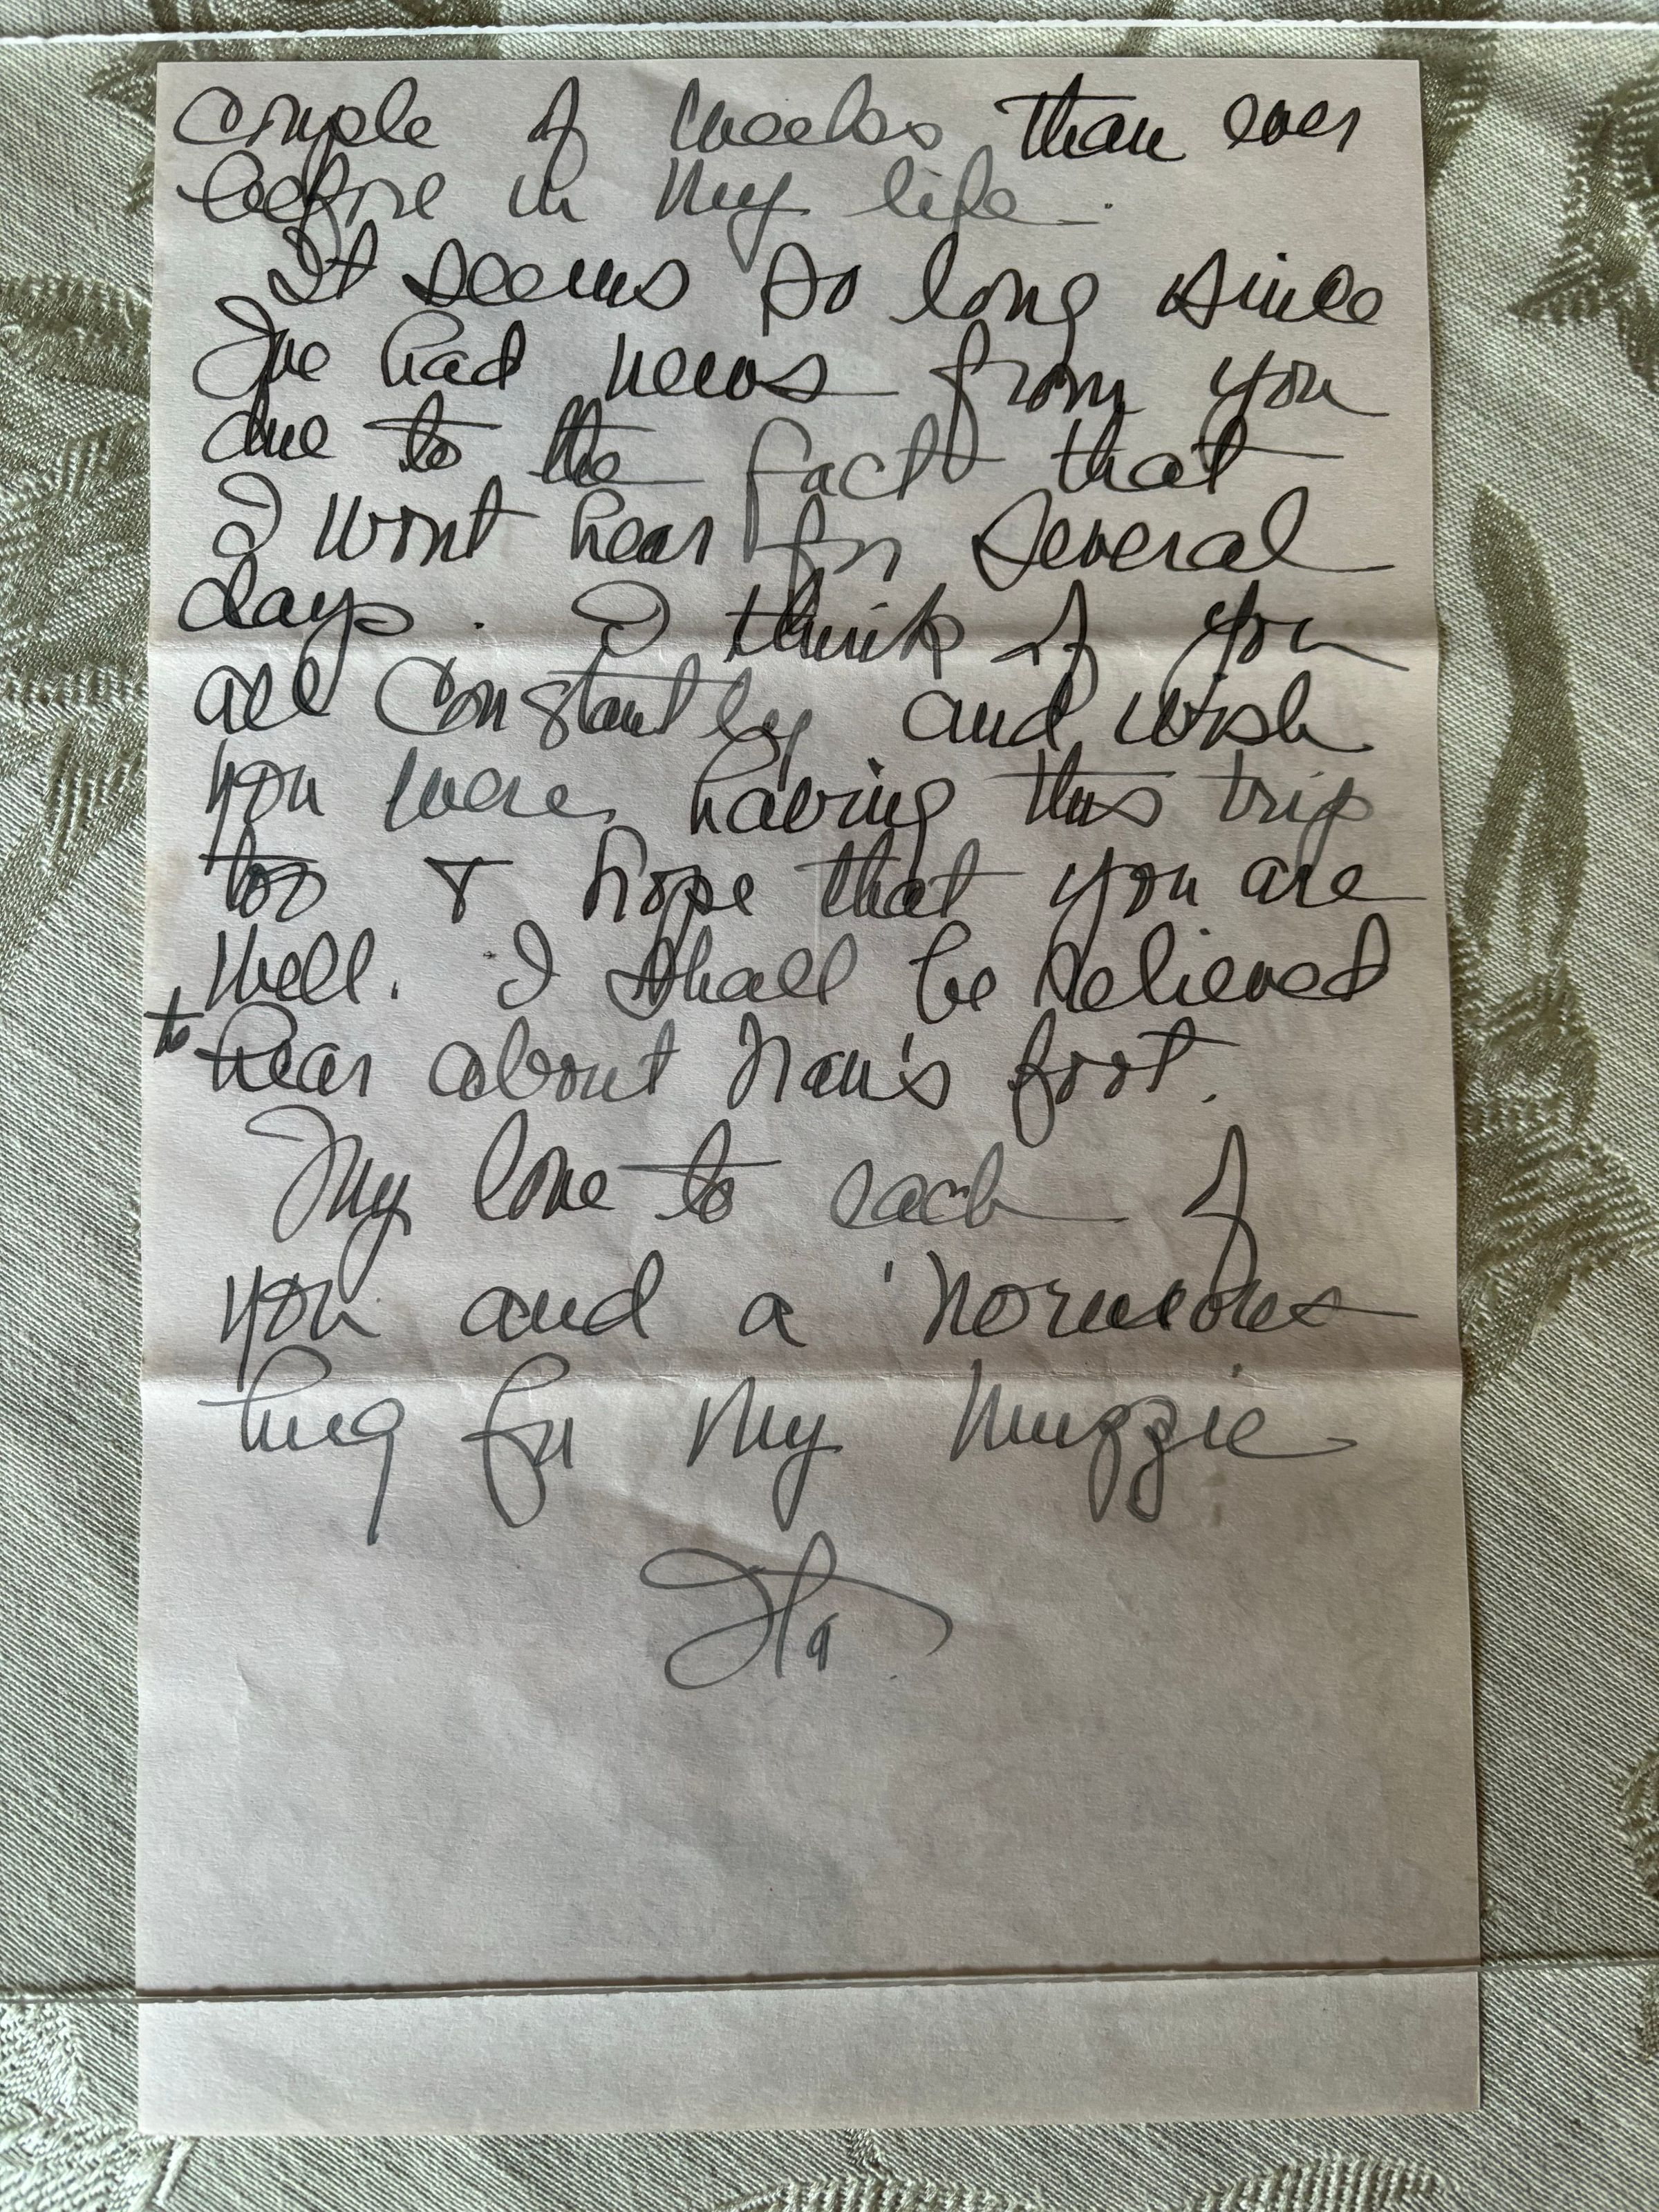 couple of weeks than ever
before in my life.
It seems so long since
I've had news from you
due to the fact that
I wont hear for several
days. I think of you
all constantly and wish
you were having this trip
too & hope that you are
well. I shall be relieved
to hear about Nan's foot.
My love to each of
you and a 'normous
hug for my muzzie